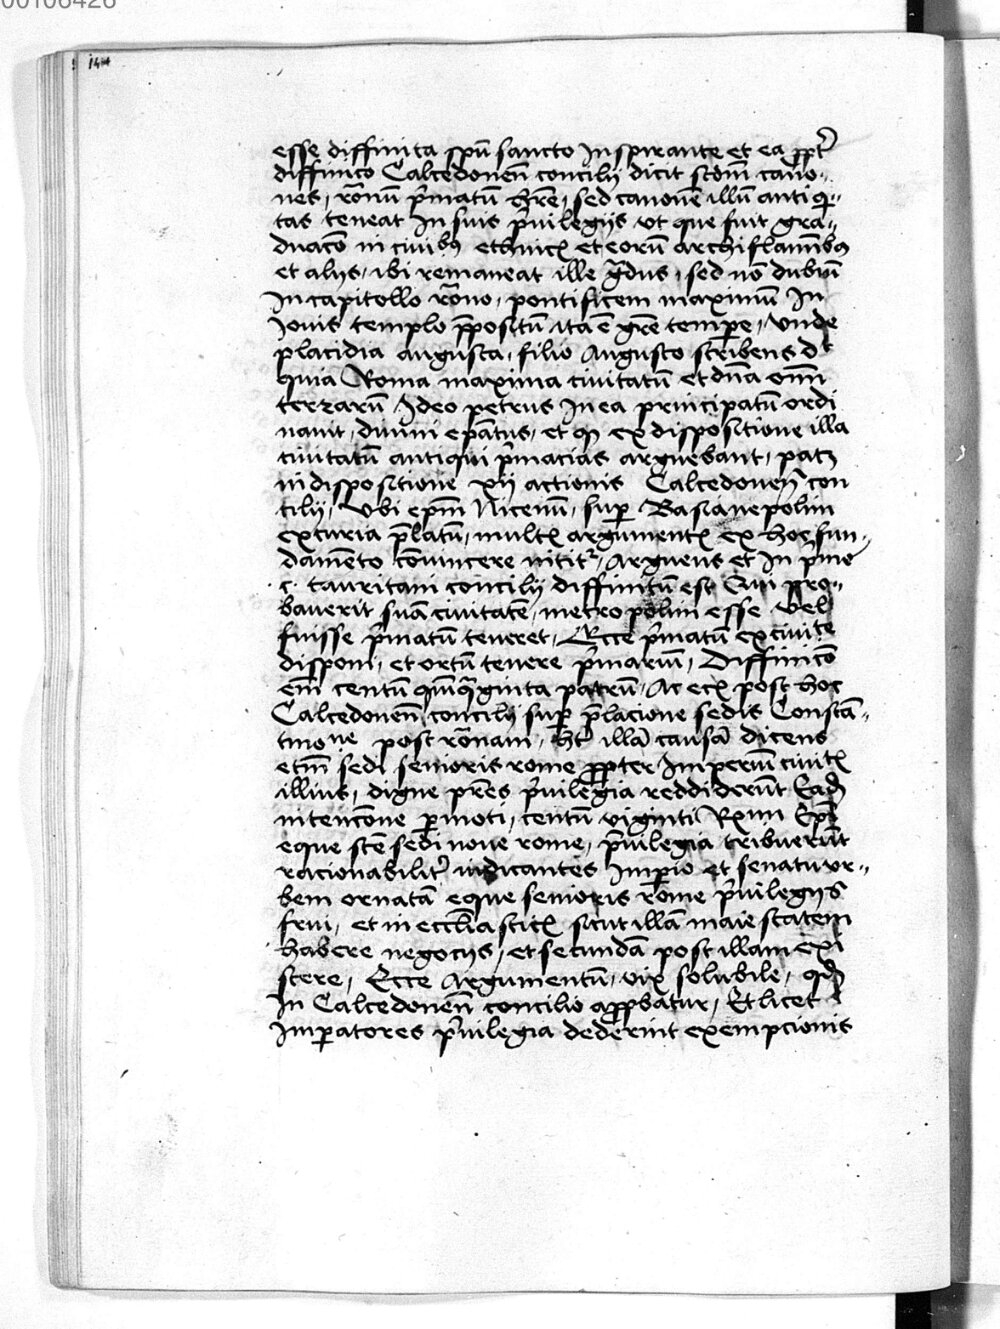 00106426
144
esse diffinita spū sancto Inspirante et ea ꝓpt̄
diffinico Calcedoneñ concilij dicit scdm̄ cano-
nes, romū p̄matū h̄re, sed canonē illū antiqi-
tas teneat In suis p̄uilegijs vt que fuit gra-
duaco in ciuibꝰ ethnicꝭ et eorū archiflaminibꝰ
et alijs, ibi remaneat ille gͣdus, sed nō dubiū
In capitollo romo, pontificem maximū In
Jouis templo p̄positū ita ē gn̄re tempe, vnde
placidia augusta, filio Augusto scribens dt
quia Roma maxima ciuitatū et dn̄a om̄
terrarū Ideo petrus In ea principatū ordi
nauit, diuini ep̄atus, et qꝫ ex dispositione illa
ciuitatū antiqui p̄matias arguebant, patꝫ
in dispositione xij actionis Calcedoneñ con
cilij, Vbi ep̄m Nicenū, suꝑ Basianepolim
ex curia p̄latū, multꝭ argumentꝭ ex hoc fun-
damento conuincere nititr, Arguens et In pͥmo
c. tauritani concilij diffinitū est Qui pro-
bauerit suā ciuitatē, metropolim esse vel
fuisse p̄matū teneret, Ecce p̄matū ex ciuite
disponi, et ortū tenere p̄mariū, Diffinico
em̄ centū qm̄qͣginta patrū, Ac ecꝭ post hoc
Calcedoneñ concilij suꝑ p̄lacione sedis Constā-
tinone post romam, ht illā causā dicens
etm̄ sedi senioris rome ꝓpter Imperiū ciuitꝭ
illius, digne pr̄es p̄uilegia reddiderūt Eadē
intencōne ꝑmoti, centū viginti Rmi Ep̄i
eque sc̄e sedi noue rome, p̄uilegia tribuerūt
racionabilitꝰ iudicantes Imꝑio et senatu vr-
bem ornatā eque senioris rome p̄uilegijs
frui, et in eccliasticꝭ sicut illā maiestatem
habere negocijs, et secundā post illam exi
stere, Ecce Argumentū, vix solubile, qd̄
In Calcedoneñ concilio apꝓbatur, Et licet
Imꝑatores p̄uilegia dederint exempcionis